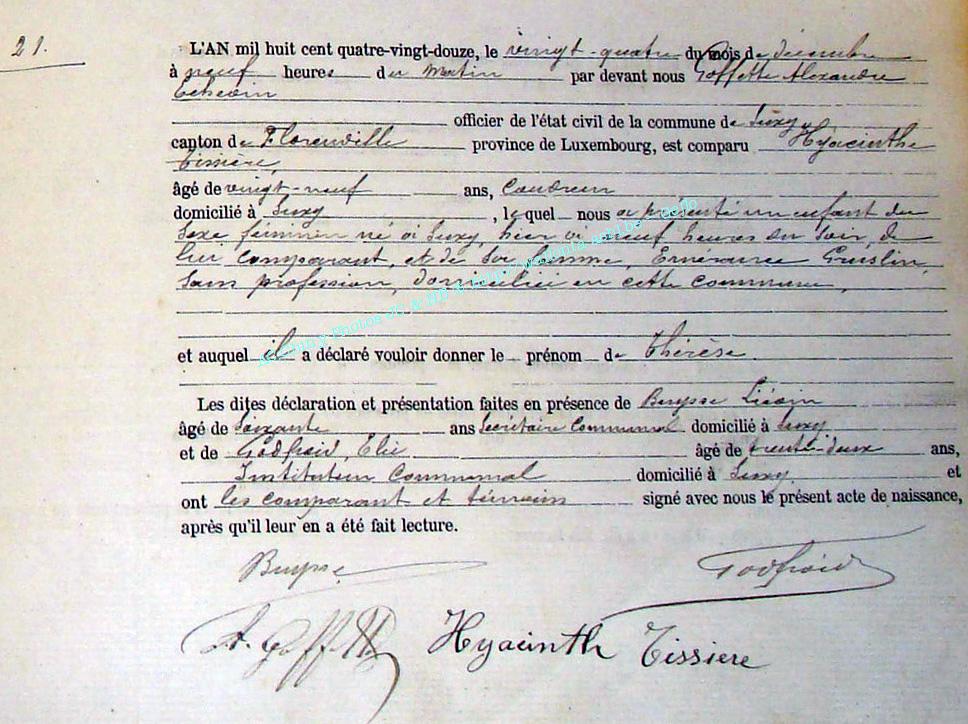 21.
L'AN mil huit cent quatre-vingt-douze, le vingt-quatre du mois de décembre
à neuf heures du matin par devant nous Goffette Alexandre
Echevin
officier de l'état civil de la commune de Suxy,
canton de Florenville province de Luxembourg, est comparu Hyacinthe
Tissière,
âgé de vingt-neuf ans,
domicilié à Suxy, lequel nous a présenté un enfant du
sexe féminin né à Suxy, hier à neuf heures du soir, de
lui comparant, et de son femme, Emérance
sans profession, domiciliée en cette commune,
et auquel il a déclaré vouloir donner le prénom de Thérèse
Les dites déclaration et présentation faites en présence de Buysse
âgé de soixante ans Secrétaire Communal domicilié à Suxy
et de Godfroid, Elie âgé de trente-deux ans,
Instituteur Communal domicilié à Suxy. et
ont les comparant et témoins signé avec nous le présent acte de naissance,
après qu'il leur en a été fait lecture.
Buysse Godfroid
A. Goffette Hyacinth Tissiere